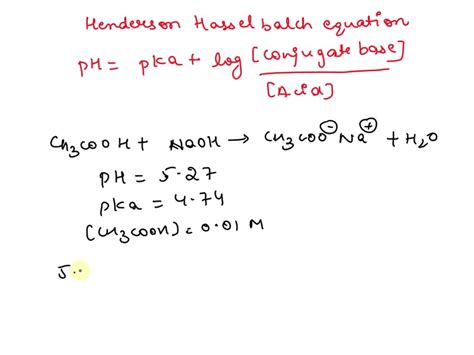 Henderson Hasselbalch equation
pH = pka + log [conjugate base]
[Acid]
CH₃COOH + NaOH → CH₃COO⊖ Na⊕ + H₂O
pH = 5.27
pka = 4.74
[CH₃COOH] = 0.01 M
5.